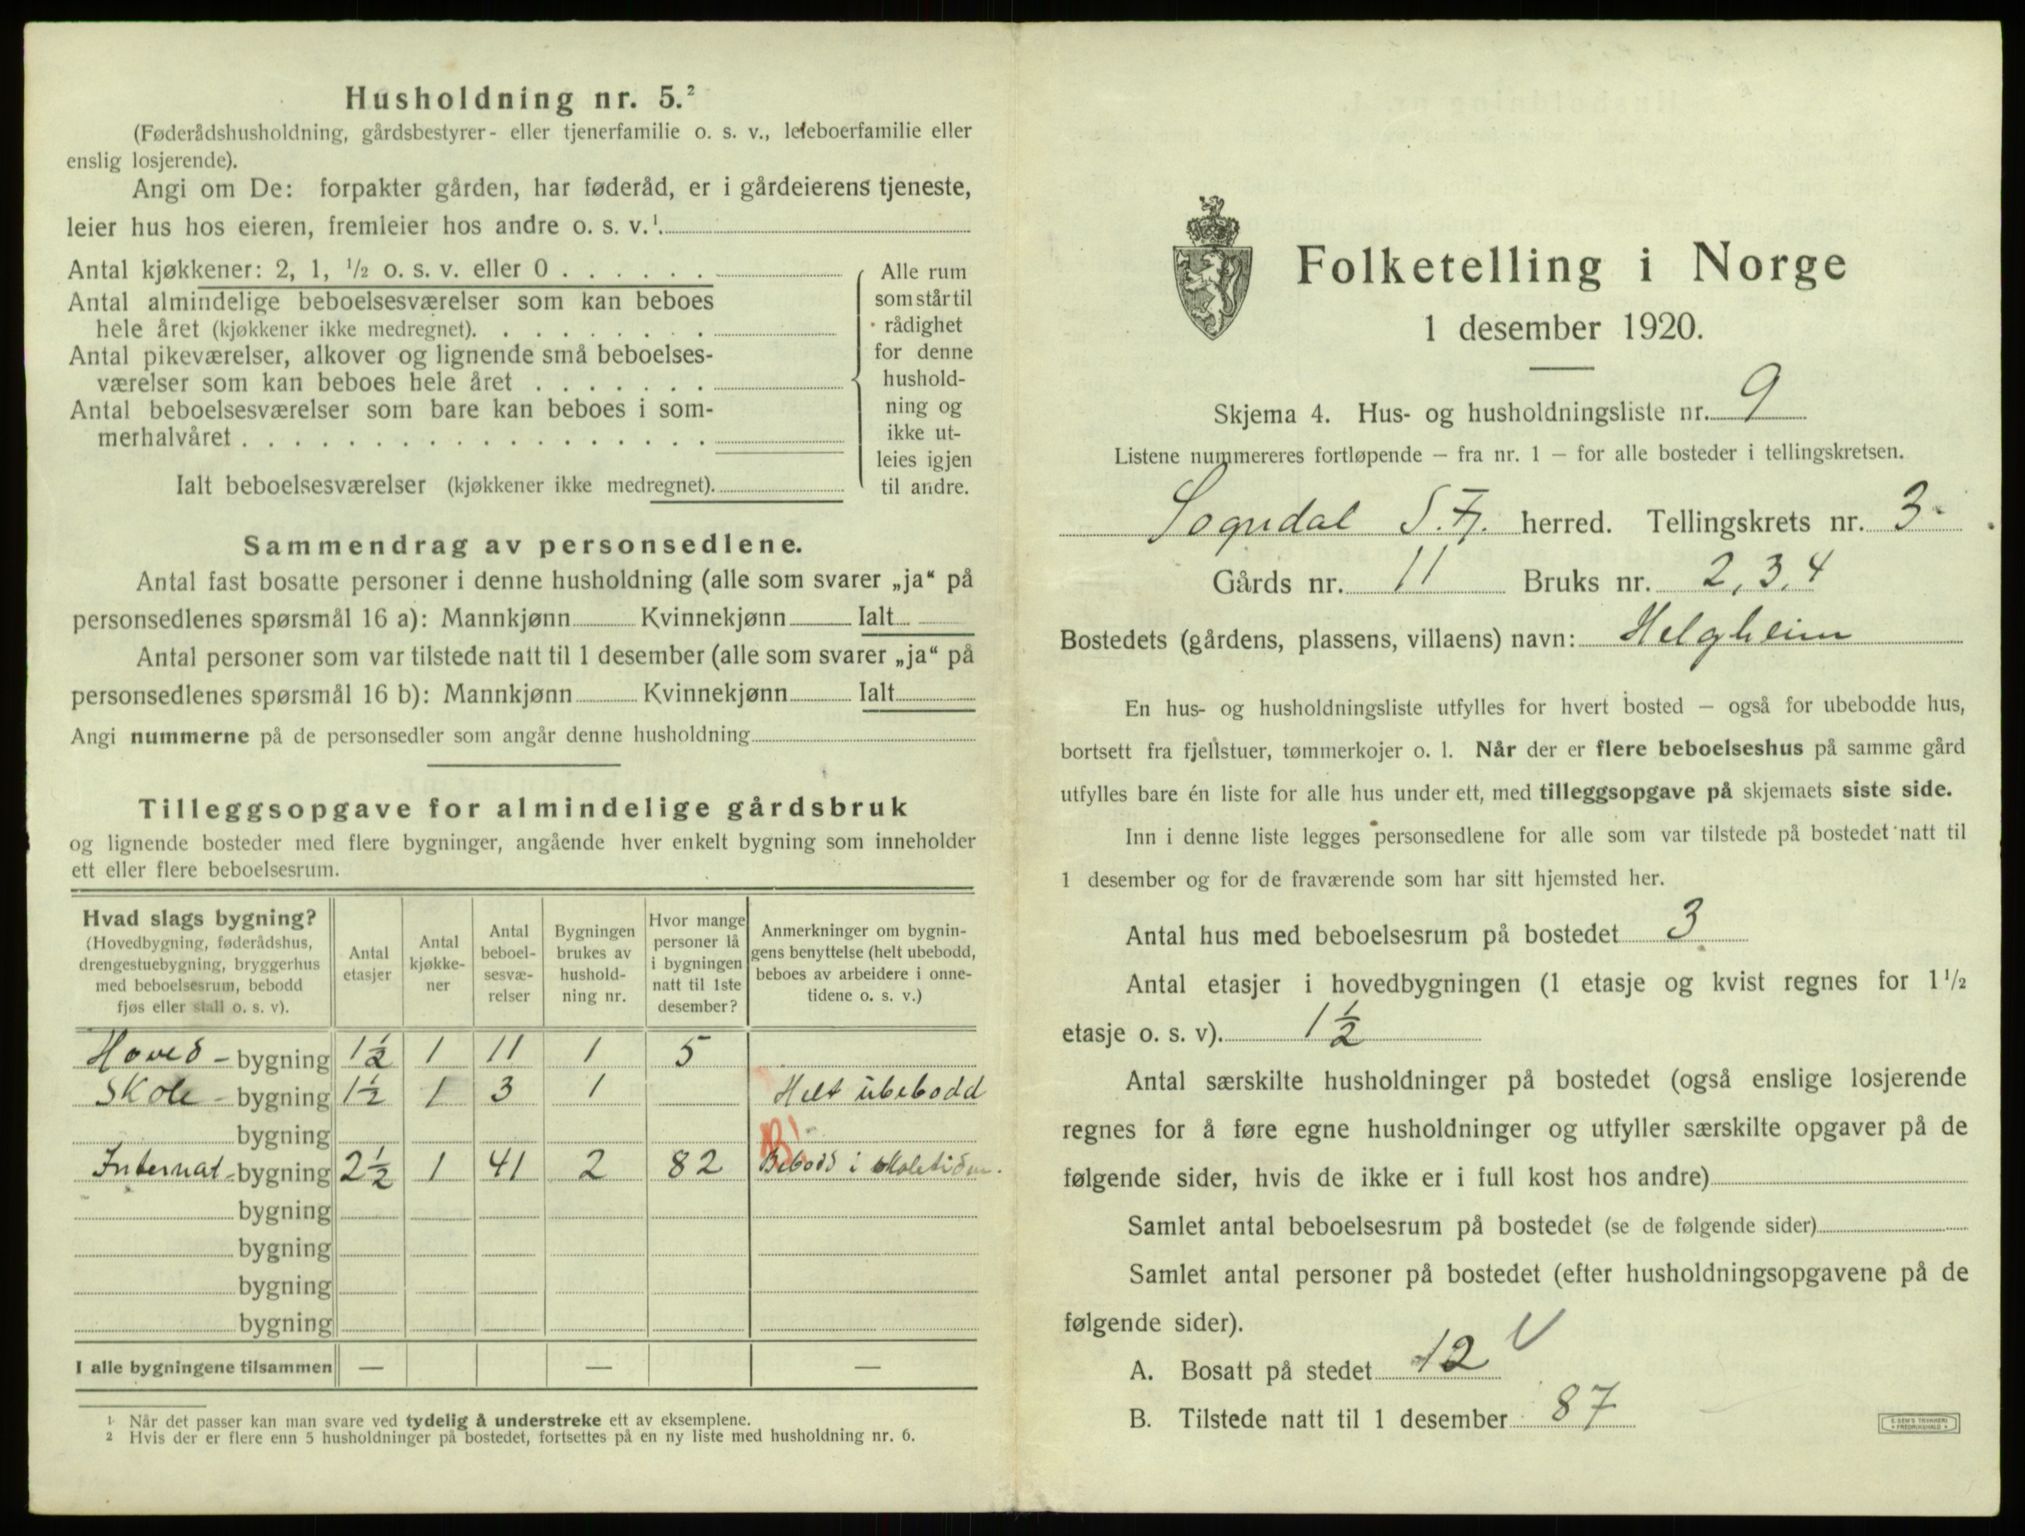 Husholdning nr. 5.²
(Føderådshusholdning, gårdsbestyrer- eller tjenerfamilie o. s. v., leieboerfamilie eller
enslig losjerende).
Angi om De: forpakter gården, har føderåd, er i gårdeierens tjeneste,
leier hus hos eieren, fremleier hos andre o. s. v.¹
Antal kjøkkener: 2, 1, ½ o. s. v. eller 0 . . . . . .
Antal almindelige beboelsesværelser som kan beboes
hele året (kjøkkener ikke medregnet). . . . . . . . .
Antal pikeværelser, alkover og lignende små beboelses-
værelser som kan beboes hele året . . . . . . .
Antal beboelsesværelser som bare kan beboes i som-
merhalvåret . . . . . . . . . . . . . . . . . .
Ialt beboelsesværelser (kjøkkener ikke medregnet).
Alle rum
som står til
rådighet
for denne
hushold-
ning og
ikke ut-
leies igjen
til andre.
Sammendrag av personsedlene.
Antal fast bosatte personer i denne husholdning (alle som svarer „ja“ på
personsedlenes spørsmål 16 a): Mannkjønn Kvinnekjønn Ialt
Antal personer som var tilstede natt til 1 desember (alle som svarer „ja“ på
personsedlenes spørsmål 16 b): Mannkjønn Kvinnekjønn Ialt
Angi nummerne på de personsedler som angår denne husholdning
Tilleggsopgave for almindelige gårdsbruk
og lignende bosteder med flere bygninger, angående hver enkelt bygning som inneholder
ett eller flere beboelsesrum.
Hvad slags bygning?
(Hovedbygning, føderådshus,
drengestuebygning, bryggerhus
med beboelsesrum, bebodd
fjøs eller stall o. s. v).
Antal
etasjer
Antal
kjøkke-
ner
Antal
beboel-
sesvæ-
relser
Bygningen
brukes av
hushold-
ning nr.
Hvor mange
personer lå
i bygningen
natt til 1ste
desember?
Anmerkninger om bygnin-
gens benyttelse (helt ubebodd,
beboes av arbeidere i onne-
tidene o. s. v.)
Hoved - bygning 1½ 1 11 1 5
Skole - bygning 1½ 1 3 1 Helt ubebodd
bygning B!
Internat - bygning 2½ 1 41 2 82 Bebodd i skoletiden.
bygning
bygning
bygning
bygning
I alle bygningene tilsammen — — —
¹ Når det passer kan man svare ved tydelig å understreke ett av eksemplene.
² Hvis der er flere enn 5 husholdninger på bostedet, fortsettes på en ny liste med husholdning nr. 6.
Folketelling i Norge
1 desember 1920.
Skjema 4. Hus- og husholdningsliste nr. 9
Listene nummereres fortløpende — fra nr. 1 — for alle bosteder i tellingskretsen.
Sogndal S. Fj. herred. Tellingskrets nr. 3
Gårds nr. 11 Bruks nr. 2, 3, 4
Bostedets (gårdens, plassens, villaens) navn: Helgheim
En hus- og husholdningsliste utfylles for hvert bosted — også for ubebodde hus,
bortsett fra fjellstuer, tømmerkojer o. l. Når der er flere beboelseshus på samme gård
utfylles bare én liste for alle hus under ett, med tilleggsopgave på skjemaets siste side.
Inn i denne liste legges personsedlene for alle som var tilstede på bostedet natt til
1 desember og for de fraværende som har sitt hjemsted her.
Antal hus med beboelsesrum på bostedet 3
Antal etasjer i hovedbygningen (1 etasje og kvist regnes for 1½
etasje o. s. v). 1½
Antal særskilte husholdninger på bostedet (også enslige losjerende
regnes for å føre egne husholdninger og utfyller særskilte opgaver på de
følgende sider, hvis de ikke er i full kost hos andre)
Samlet antal beboelsesrum på bostedet (se de følgende sider)
Samlet antal personer på bostedet (efter husholdningsopgavene på de
følgende sider).
A. Bosatt på stedet 12 V
B. Tilstede natt til 1 desember 87
E. SEM'S TRYKKERI
FREDRIKSHALD